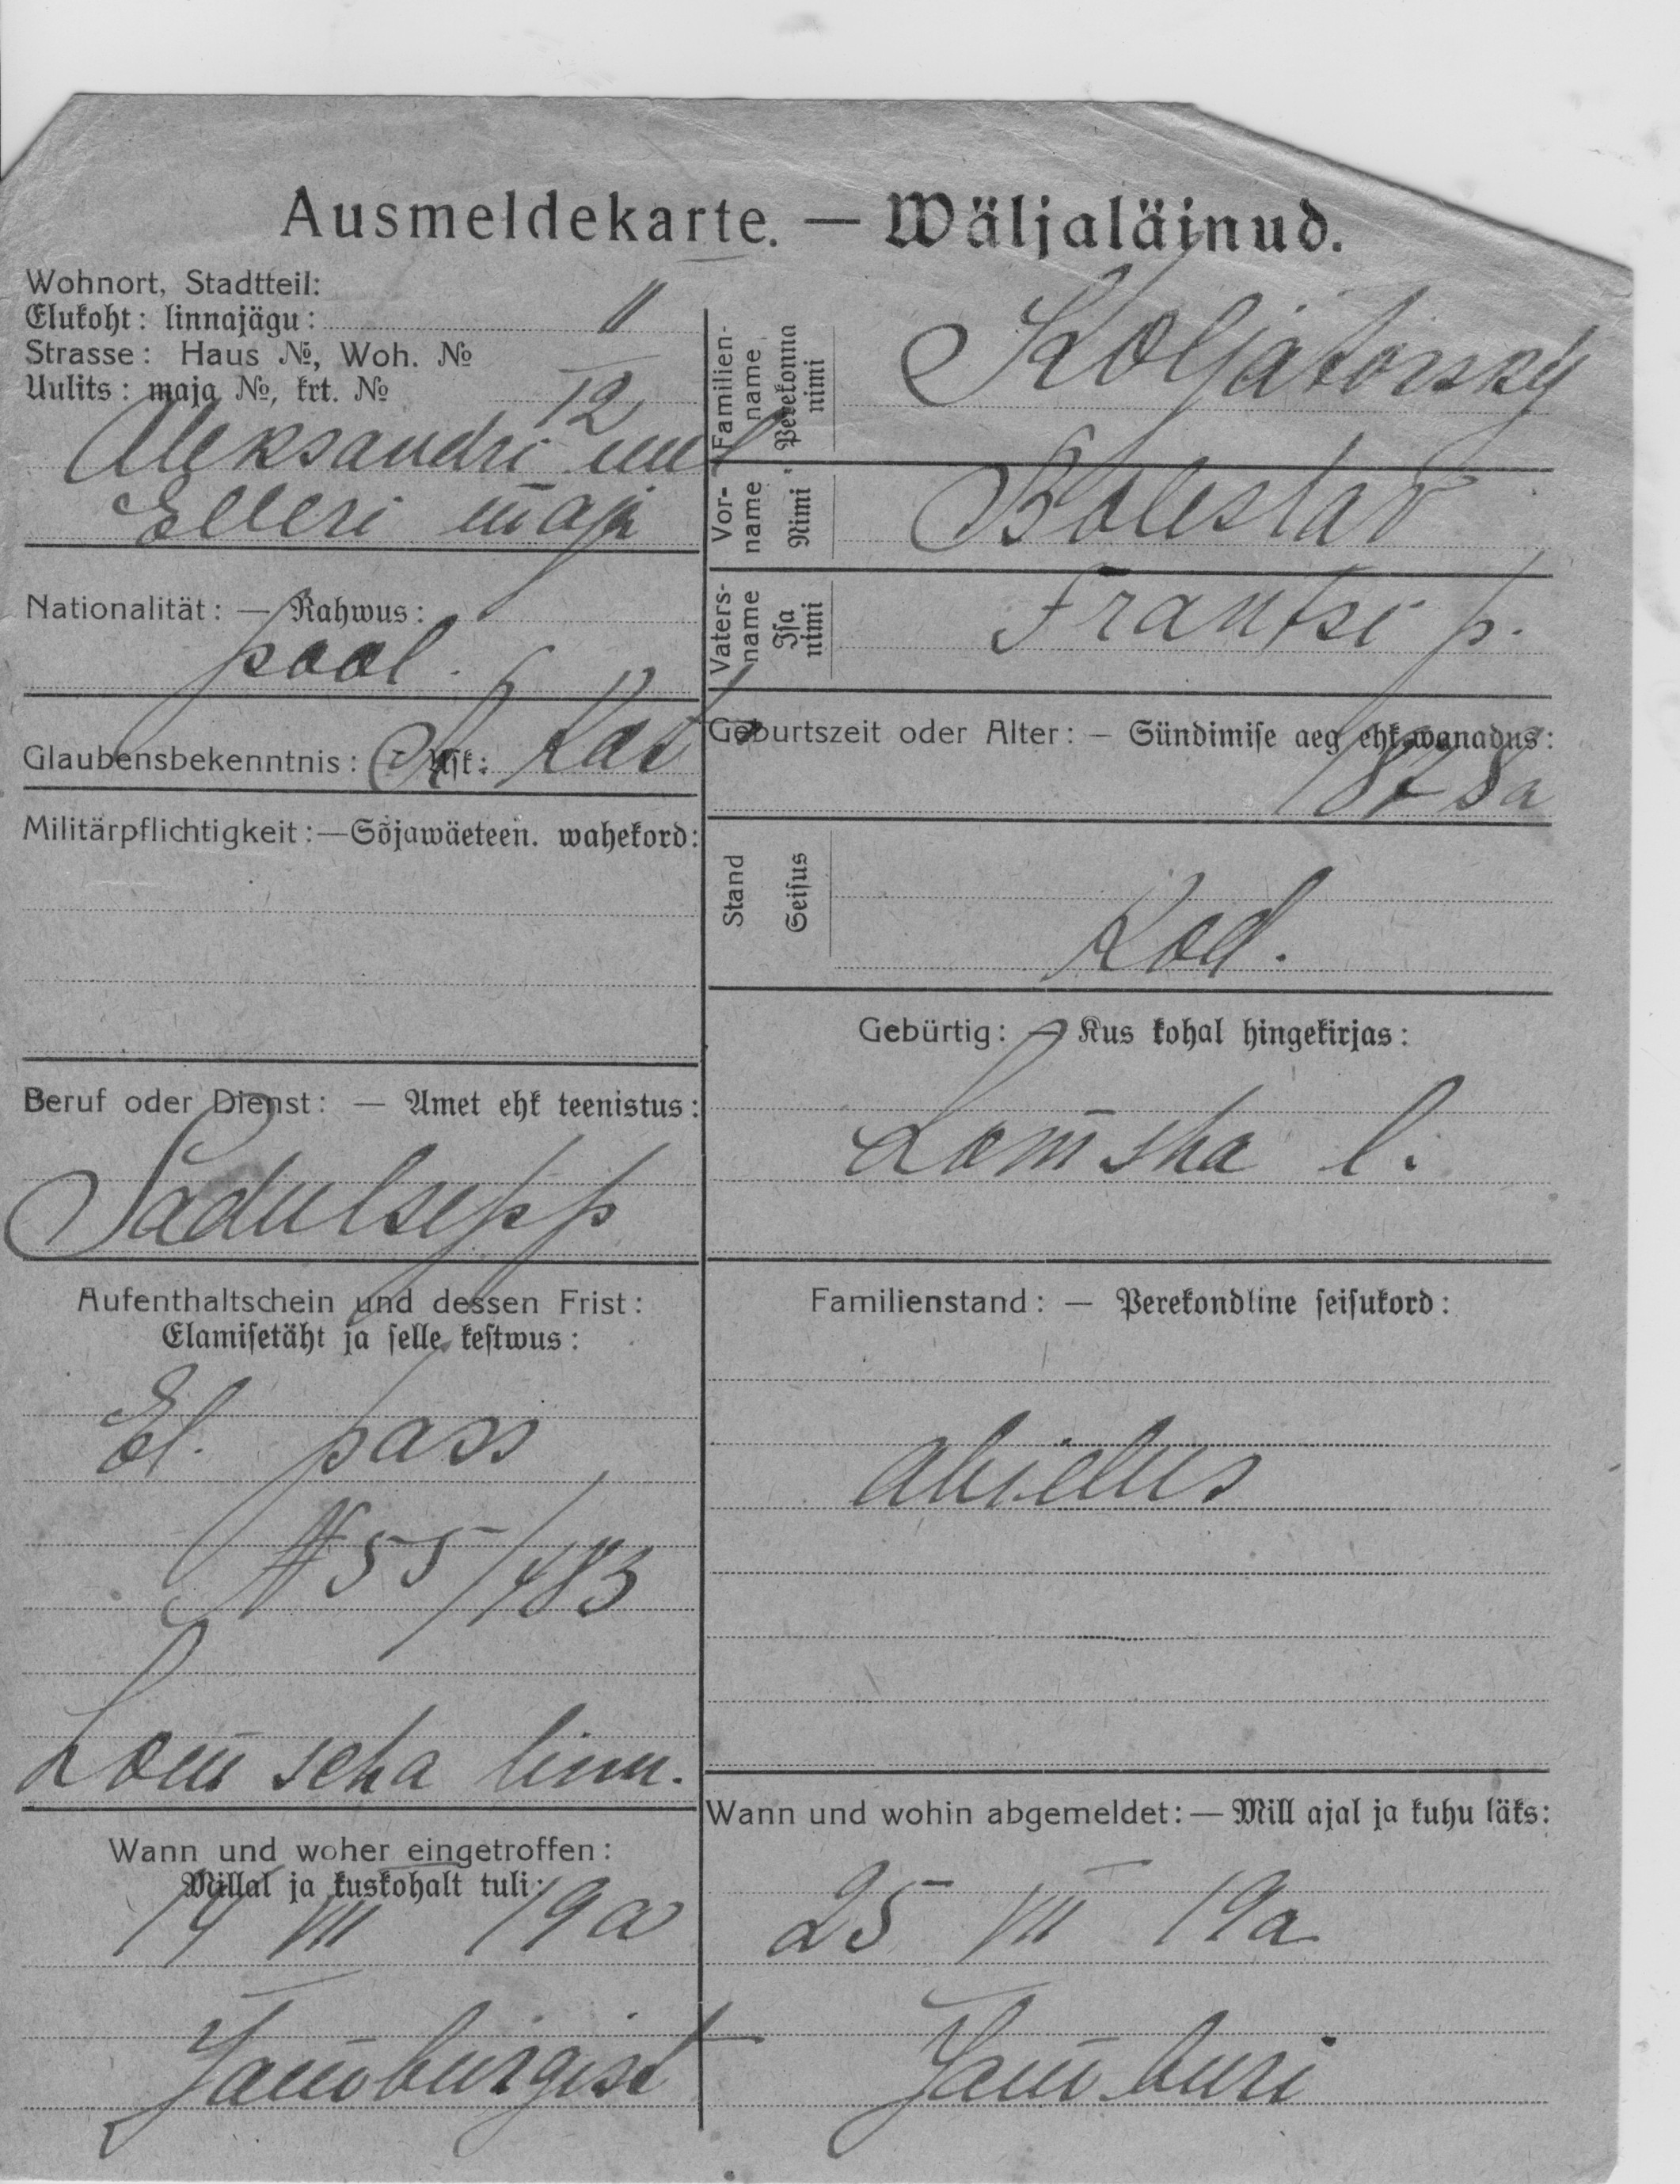 Ausmeldekarte. — Wäljaläinud.
Wohnort, Stadtteil:
Elukoht: linnajägu: II
Strasse: Haus №, Woh. №
Uulits: maja №, krt. № 12
Aleksandri uul
Elleri maja
Nationalität: — Rahwus:
pool.
Glaubensbekenntnis: — Usk: R. Kat
Militärpflichtigkeit: — Sõjawäeteen. wahekord:
Beruf oder Dienst: — Amet ehk teenistus:
Sadulsepp
Aufenthaltschein und dessen Frist:
Elamisetäht ja selle kestwus:
El. pass
№ 55/483
Lomscha linn.
Wann und woher eingetroffen:
Millal ja kuskohalt tuli:
14 VII 19 a
Jamburgist
Familien-
name
Perekonna
nimi
Koljatorsky
Vor-
name
Nimi
Boleslav
Vaters-
name
Isa
nimi
Frantsi p.
Geburtszeit oder Alter: — Sündimise aeg ehk wanadus:
1878 a
Stand
Seisus
Kod.
Gebürtig: — Kus kohal hingekirjas:
Lomsha l.
Familienstand: — Perekondline seisukord:
abielus
Wann und wohin abgemeldet: — Mill ajal ja kuhu läks:
25 VII 19 a
Jamburi